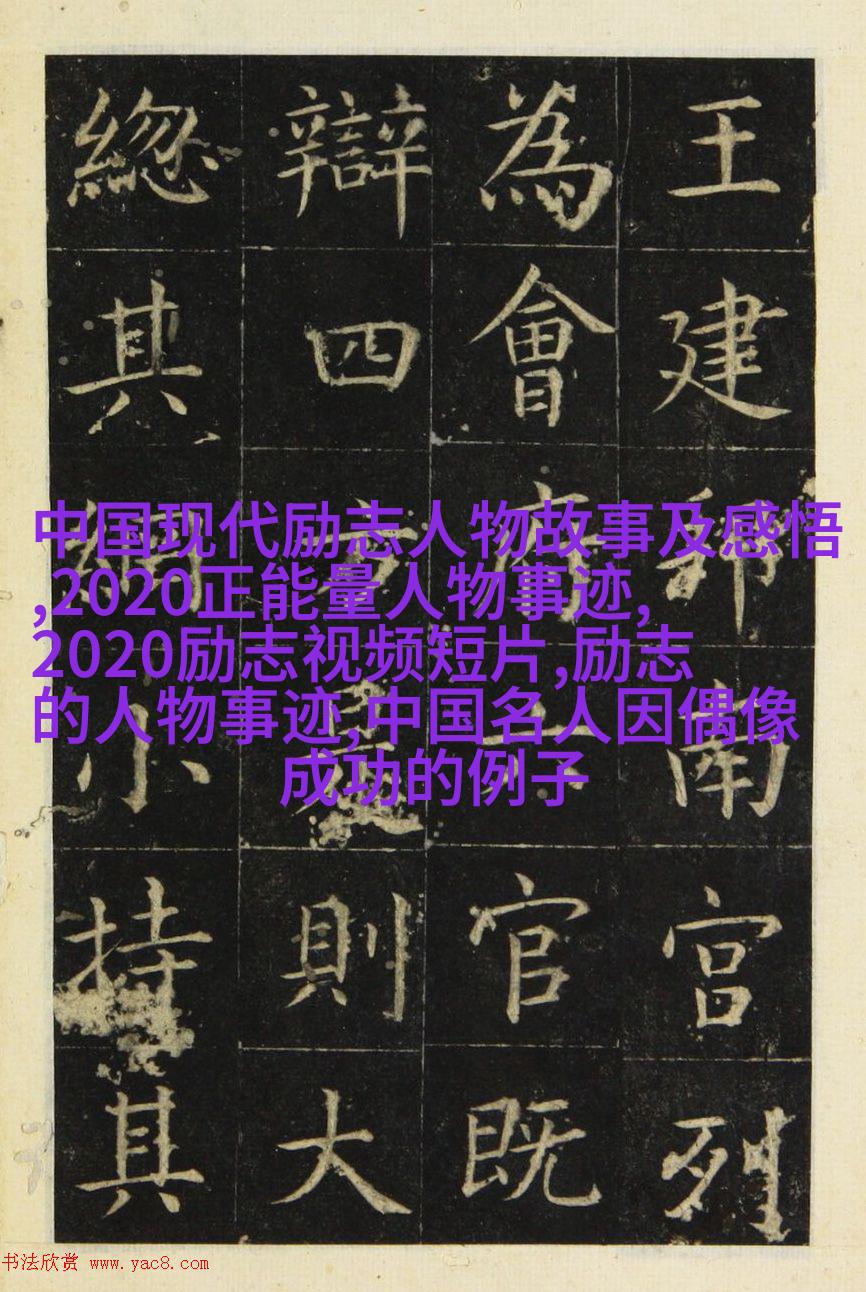 王建邦南宫列
為會府六官既
辯四方是則大
緫其綱小持其
中国现代励志人物故事及感悟
,2020正能量人物事迹,
2020励志视频短片,励志
的人物事迹,中国名人因偶像
成功的例子
书法欣赏 www.yac8.com